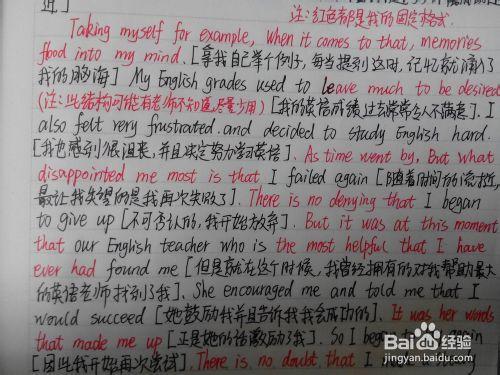 近]
注:红色都是我的固定格式.
Taking myself for example, When it comes to that, memories
flood into my mind. [拿我自己举个例子, 每当提到这时, 记忆就涌入了
我的脑海] My English grades used to leave much to be desired
(注:此结构可能有老师不知道,尽量少用) [我的英语成绩过去常常令人不满意]. I
also felt very frustrated and decided to study English hard.
[我也感到很沮丧, 并且决定努力学习英语]. As time went by, But what
disappointed me most is that I failed again [随着时间的流逝,
最让我失望的是我再次失败了]. There is no denying that I began
to give up [不可否认的, 我开始放弃]. But it was at this moment
that our English teacher who is the most helpful that I have
ever had found me [但是就在这个时候, 我曾经拥有的对我帮助最大
的英语老师找到了我]. She encouraged me and told me that I
would succeed [她鼓励我并且告诉我我会成功的]. It was her words
that made me up [正是她的话激励了我]. So I began again
[因此我开始再次尝试]. There is no doubt that I
Baidu 经验
jingyan.baidu.com